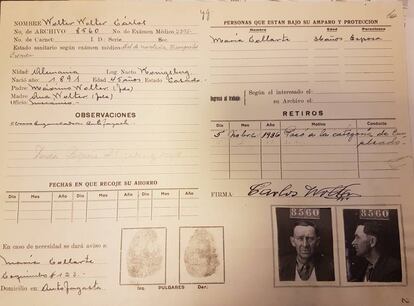 NOMBRE Wolter Wolter Carlos
No. de ARCHIVO 8560 No. de Exámen Médico
No. de Carnet I D. Serie Sec.
Estado sanitario según exámen médico
Nidad Alemania Lug. Nacto
Nació año 1891 Edad 45 años Estado Casado
Padre Máximo Wolter (fdo)
Madre Ana Wolter (fda)
Oficio
OBSERVACIONES
Antofagasta
FECHAS EN QUE RECOJE SU AHORRO
Día Mes Año Día Mes Año
En caso de necesidad se dará aviso a
María Collarte
Coquimbo # 123.
Domicilio en Antofagasta
Izq. PULGARES Der.
PERSONAS QUE ESTAN BAJO SU AMPARO Y PROTECCION
Nombre Edad Parentesco
María Collarte 36 años Esposa
Ingresó al trabajo
Según el interesado el
su Archivo el
RETIROS
Día Mes Año Motivo Conducta
5 Nobre 1936 Pasó a la categoría de Em
pleado.
FIRMA: Carlos Wolter
8560 8560